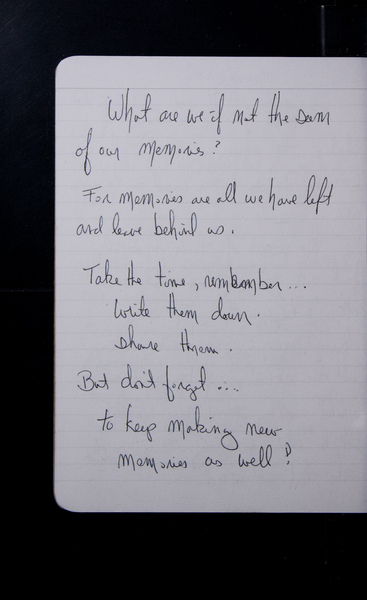 What are we if not the sum
of our memories?
For memories are all we have left
and leave behind us.
Take the time, remember...
Write them down.
Share them.
But don't forget...
to keep making new
memories as well!